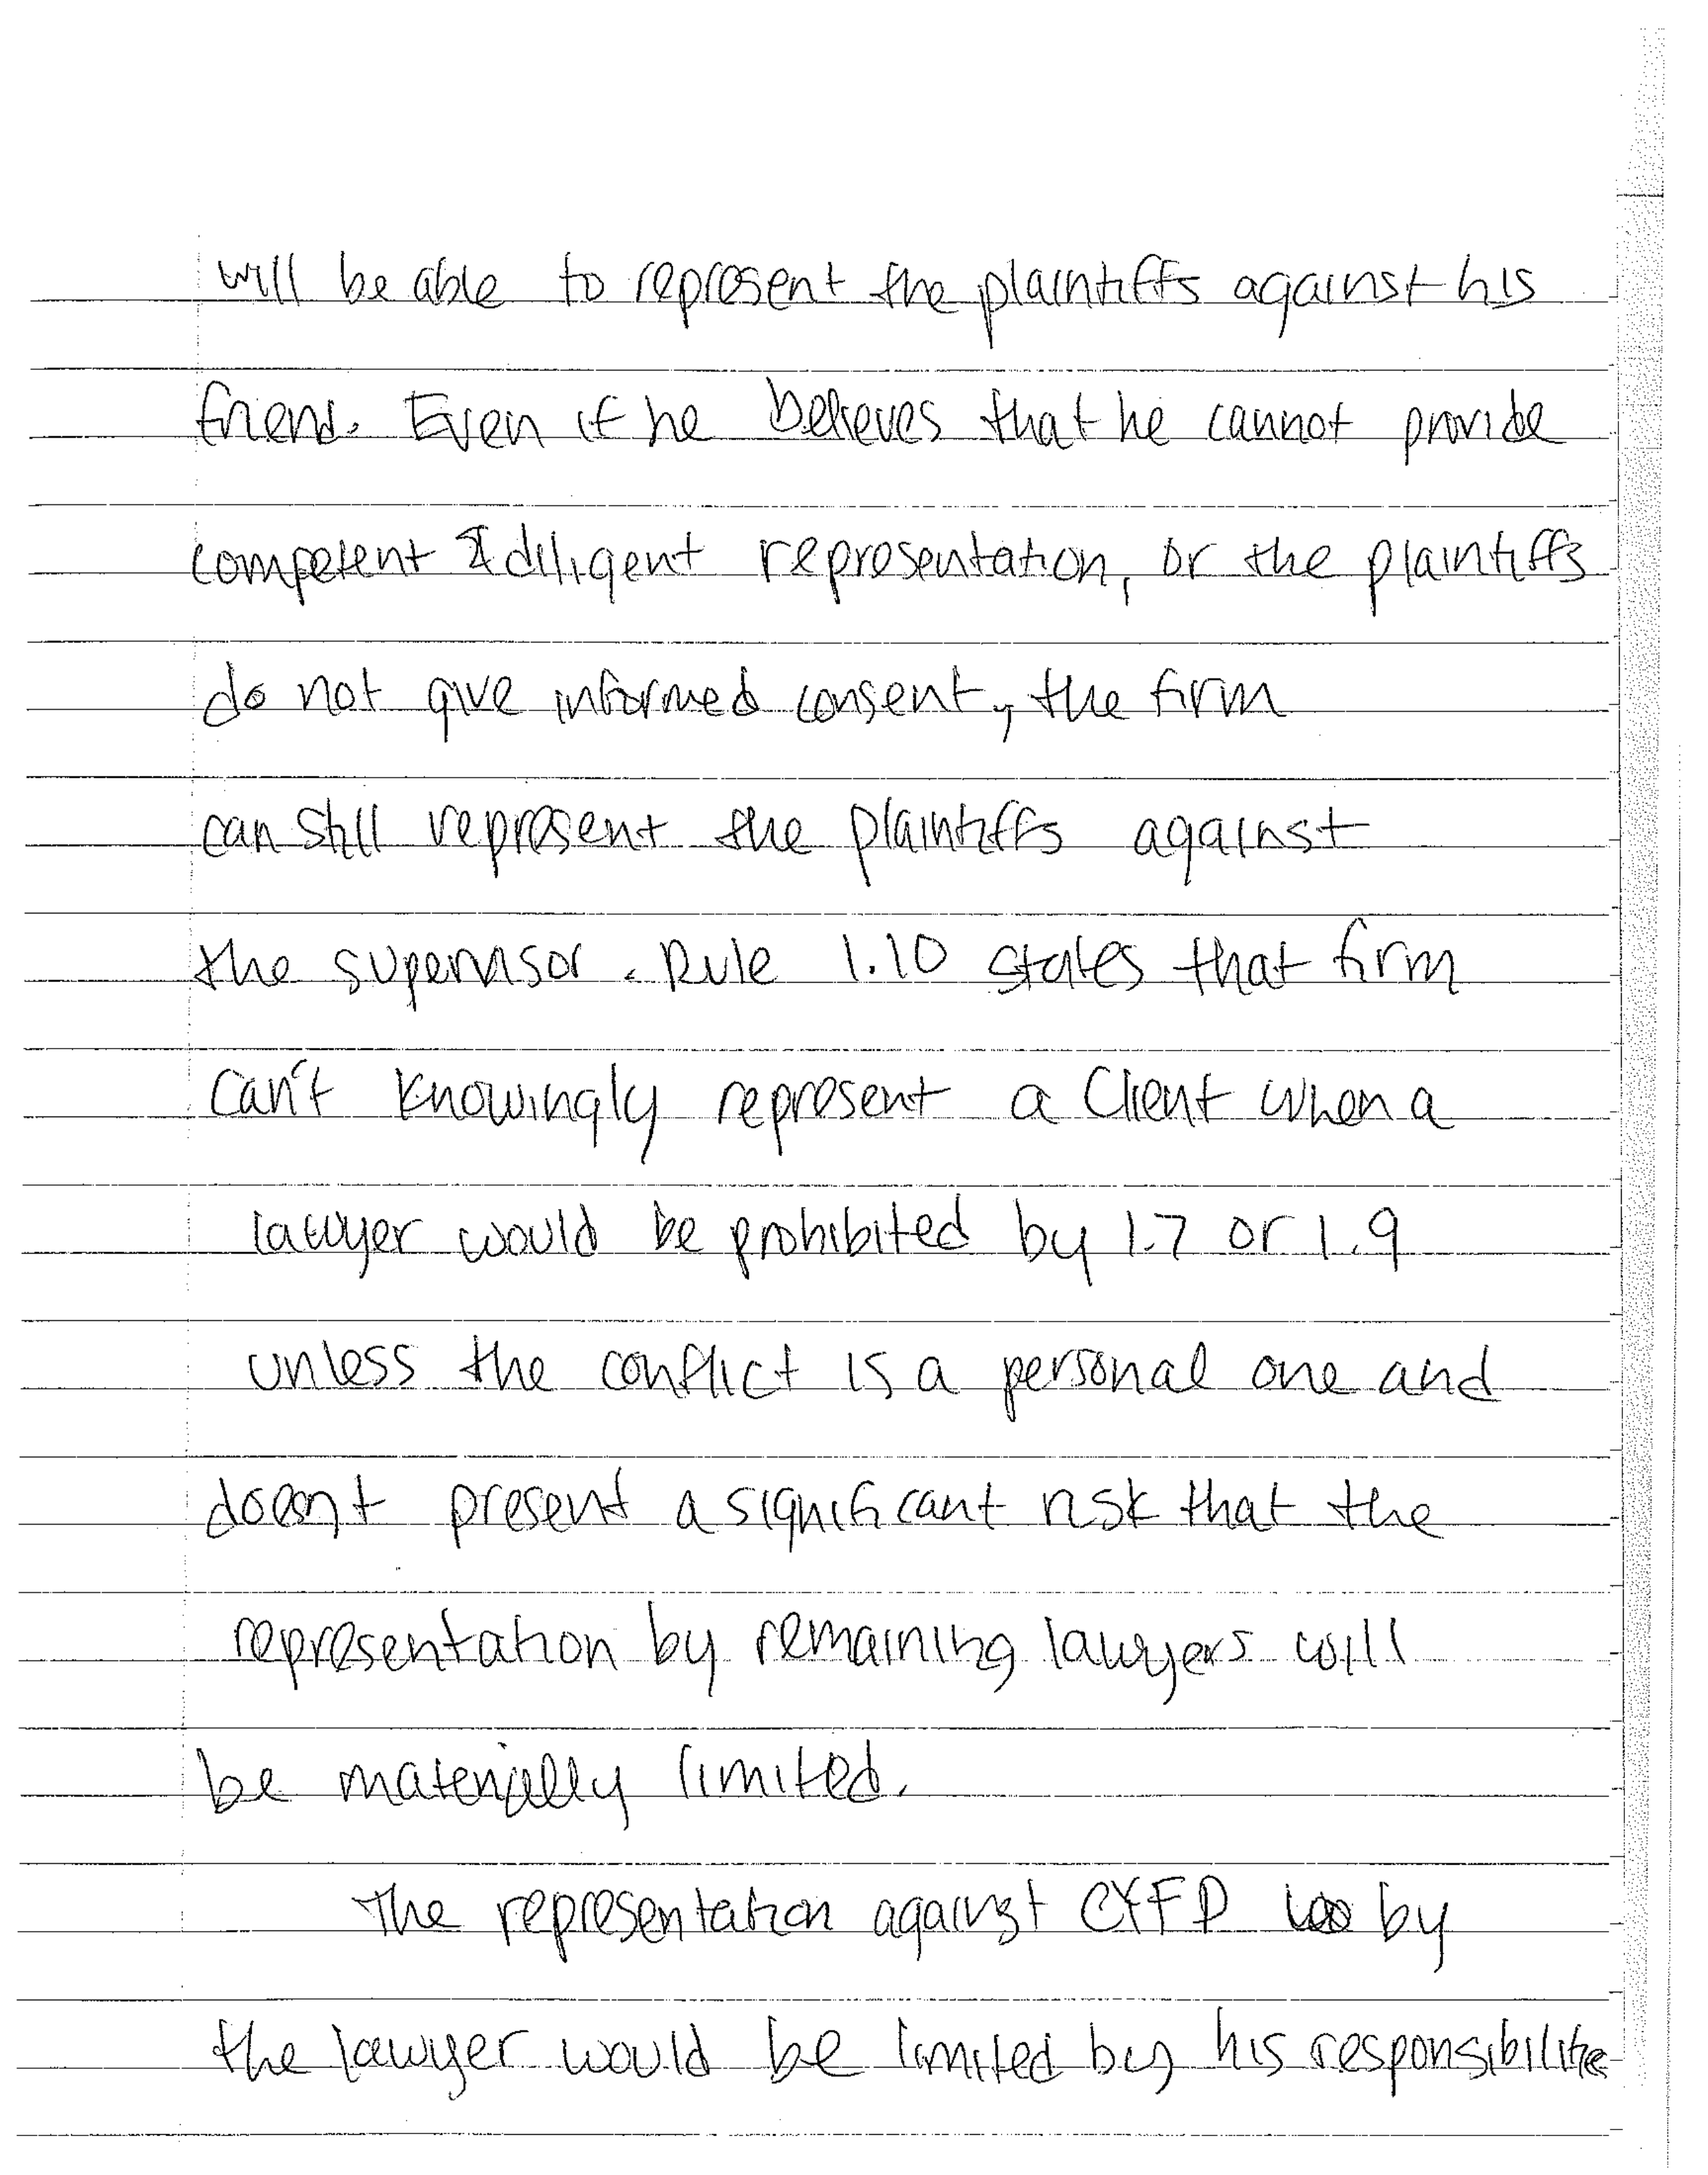 will be able to represent the plaintiffs against his
friend. Even if he believes that he cannot provide
competent & diligent representation, or the plaintiffs
do not give informed consent, the firm
can still represent the plaintiffs against
the supervisor. Rule 1.10 states that firm
can't knowingly represent a client when a
lawyer would be prohibited by 1.7 or 1.9
unless the conflict is a personal one and
doesn't present a significant risk that the
representation by remaining lawyers will
be materially limited.
The representation against CYFD by
the lawyer would be limited by his responsibilitie